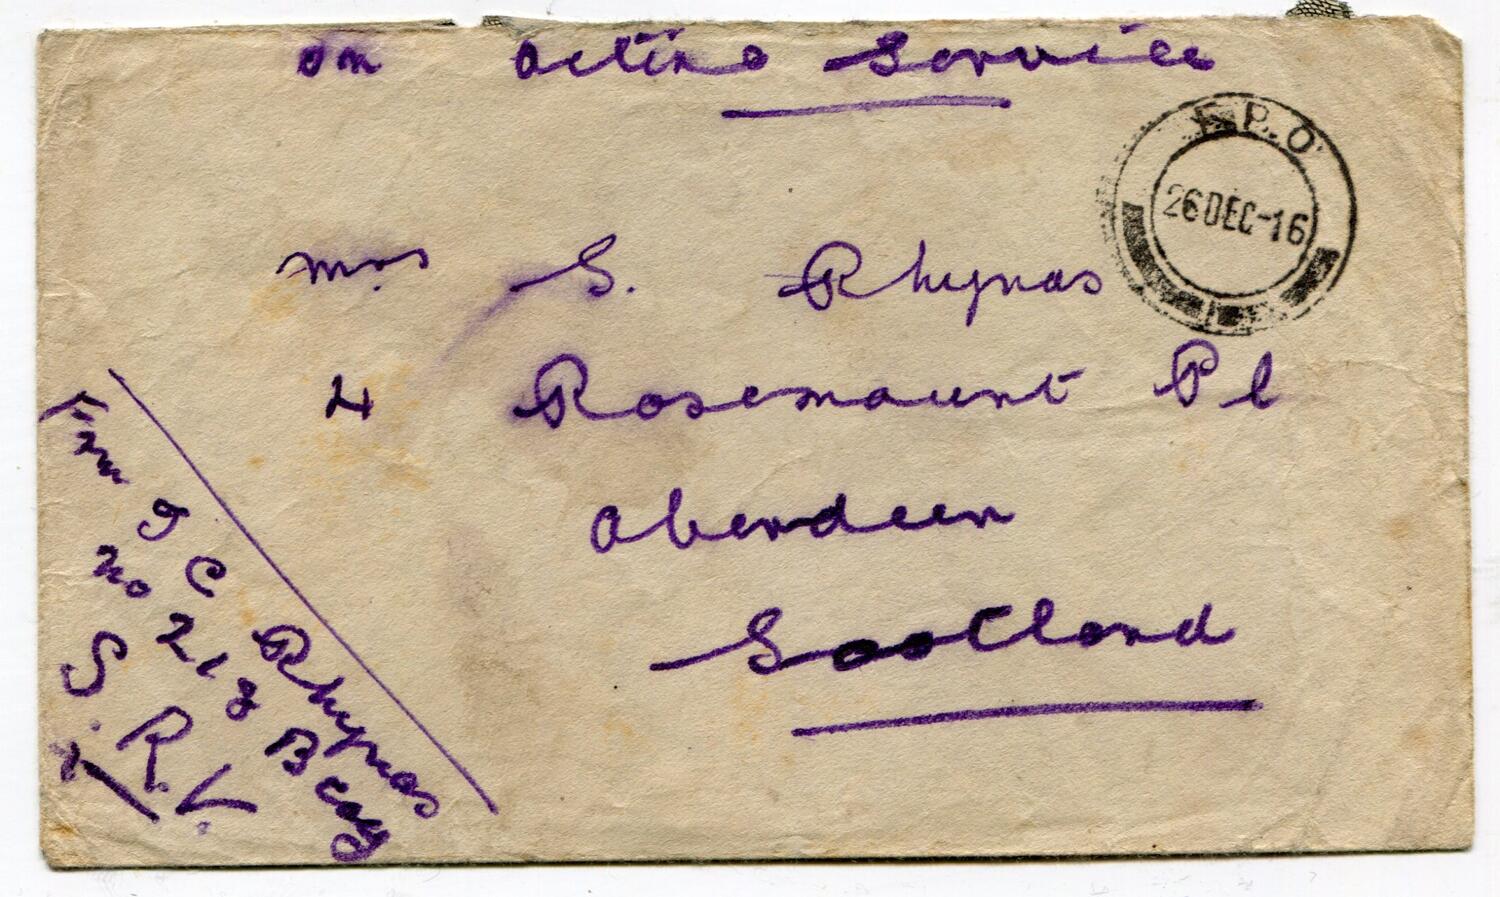 On Active Service
F.P.O.
26 DEC-16
Mrs S. Rhynas
4 Rosemount Pl
Aberdeen
Scotland
From J C Rhynas
No 218 B Coy
S. R. V.